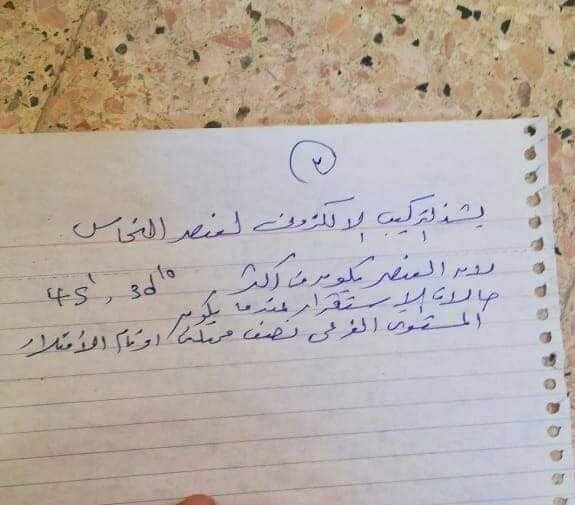 ٣
يشذ التركيب الإلكترونى لعنصر النحاس
لأن العنصر يكون فى أكثر 4S¹, 3d¹⁰
حالات الاستقرار عندما يكون
المستوى الفرعى نصف ممتلئ او تام الأمتلاء